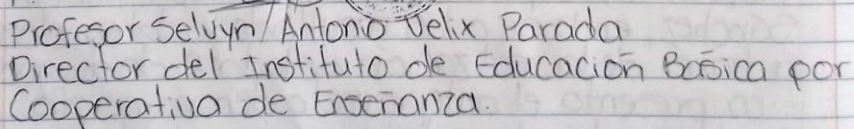 Profesor Selvyn Antonio Velix Parada
Director del Instituto de Educación Básica por
Cooperativa de Enseñanza.